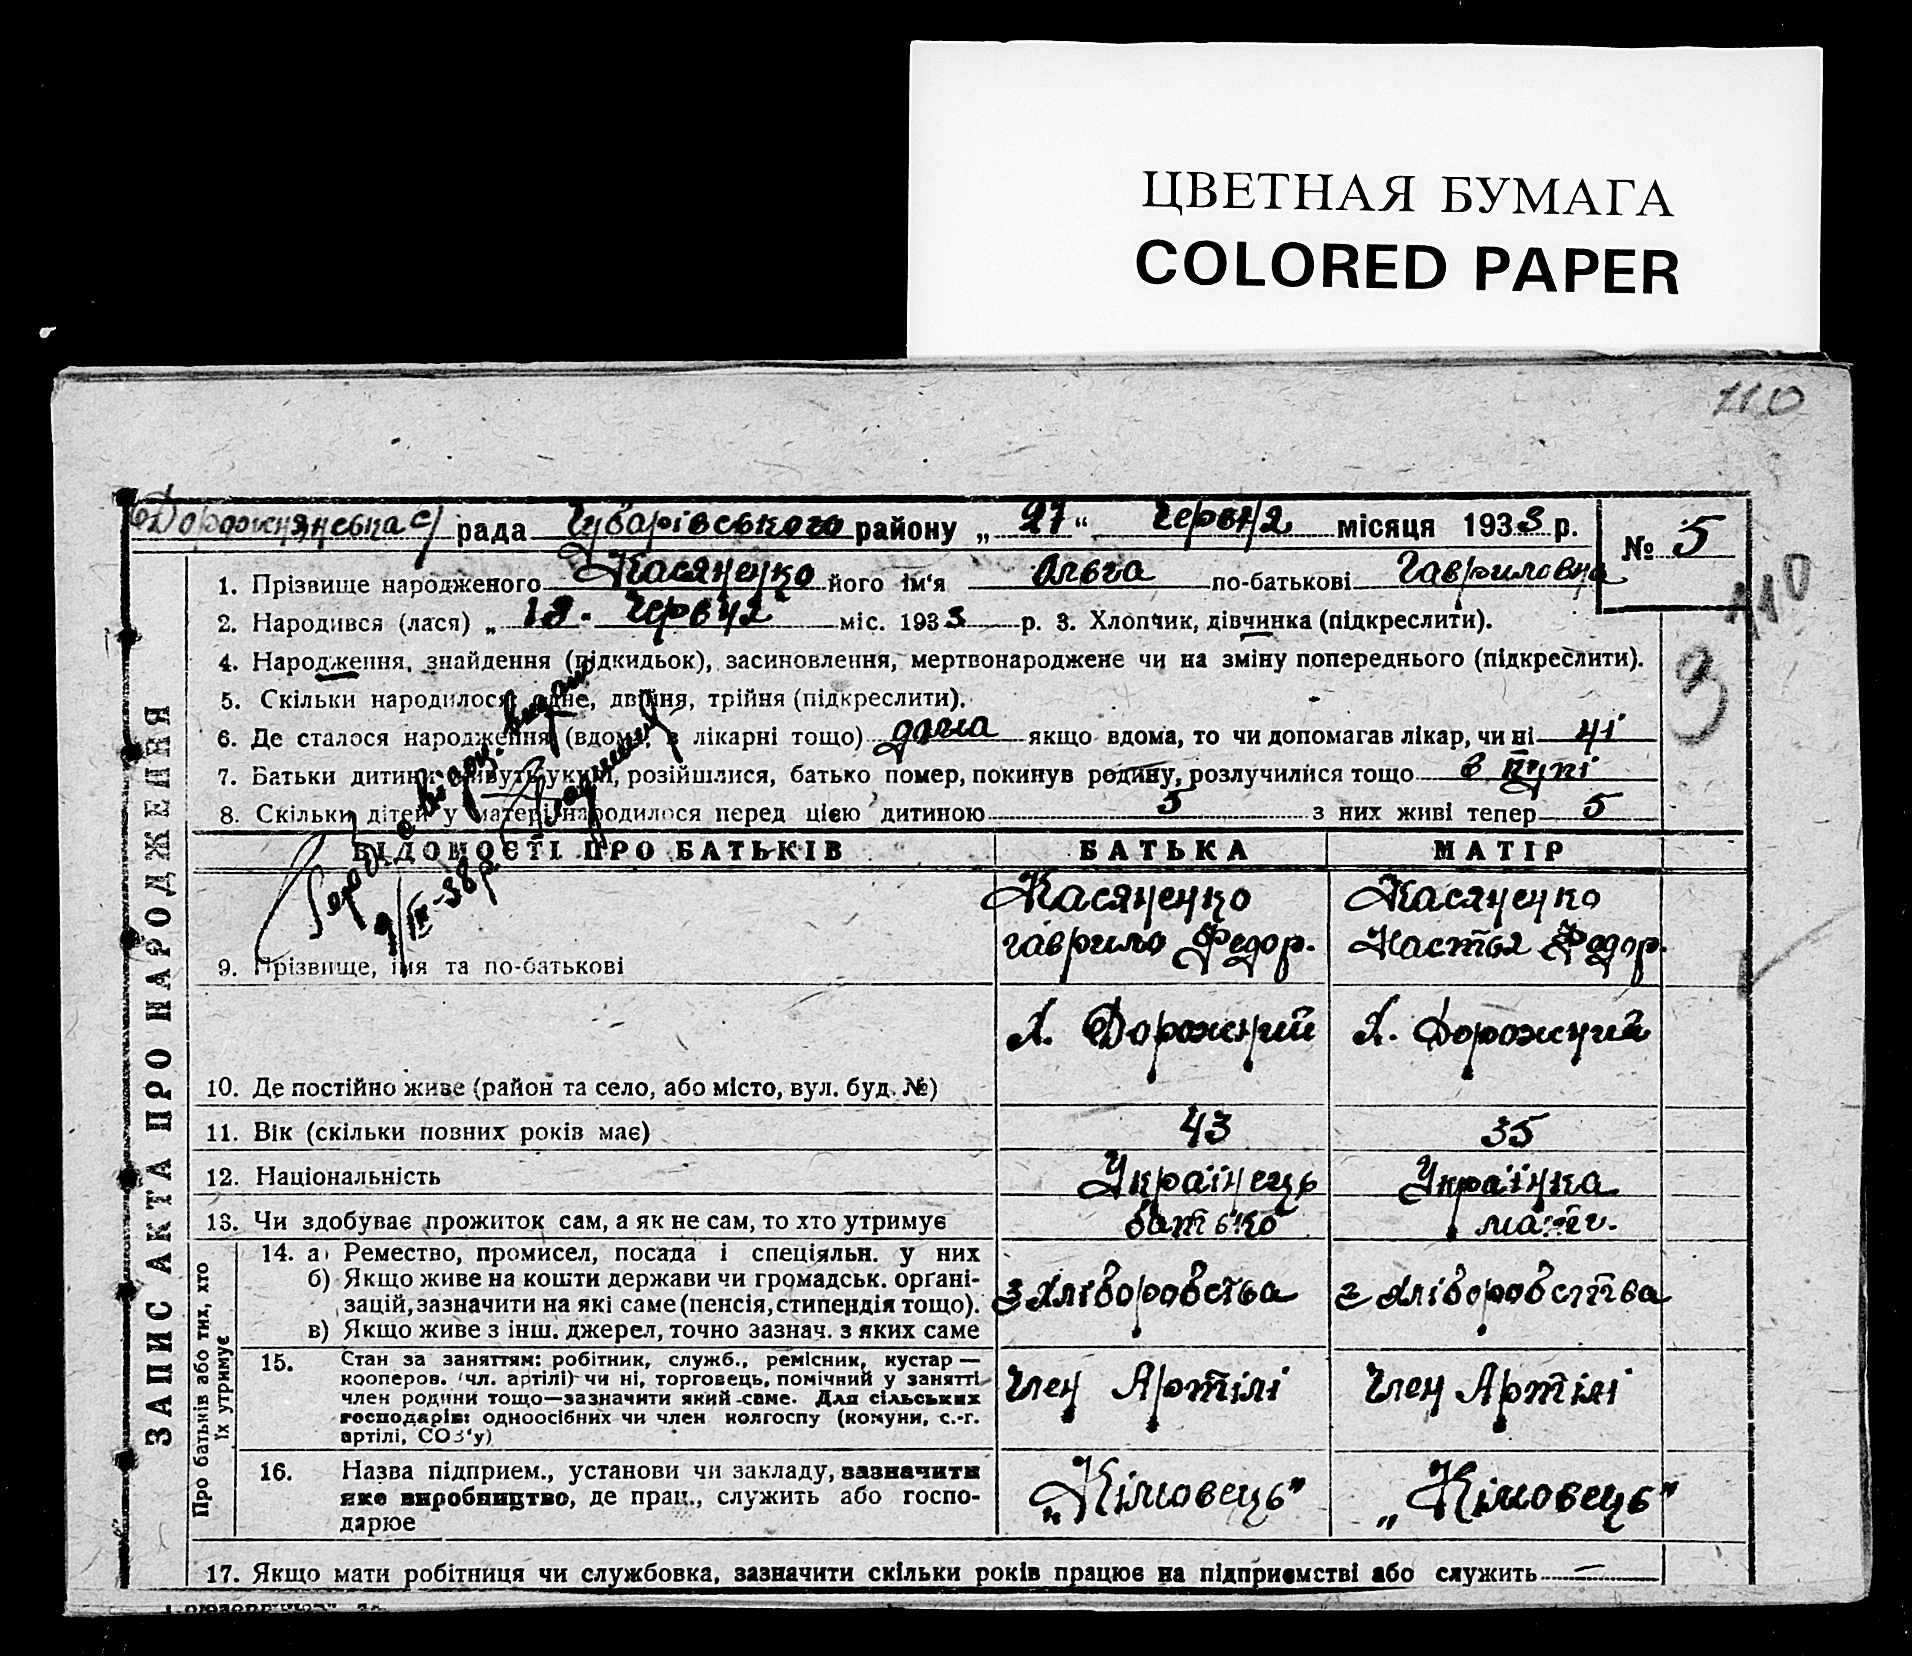 ЦВЕТНАЯ БУМАГА
COLORED PAPER
110
Дорожнянська с/ рада Чубарівського району „27“ червня місяця 1933 р. № 5
1. Прізвище народженого Касяненко його ім‘я Ольга по-батькові Гавриловна
110
2. Народився (лася) „18 - червня міс. 1933 р. 3. Хлопчик, дівчинка (підкреслити).
4. Народження, знайдення (підкидьок), засиновлення, мертвонароджене чи на зміну попереднього (підкреслити).
3
5. Скільки народилося: одне, двійня, трійня (підкреслити).
6. Де сталося народження (вдома, в лікарні тощо) дома якщо вдома, то чи допомагав лікар, чи ні ні
7. Батьки дитини живуть укупі, розійшлися, батько помер, покинув родину, розлучилися тощо в купі
8. Скільки дітей у матері народилося перед цією дитиною 5 з них живі тепер 5
ВІДОМОСТІ ПРО БАТЬКІВ БАТЬКА МАТІР
9/III-38р.
Касяненко Касяненко
Гаврило Федор. Настья Федор.
9. Прізвище, імя та по-батькові
Х. Дорожний Х. Дорожний
10. Де постійно живе (район та село, або місто, вул. буд. №)
11. Вік (скільки повних років має) 43 35
12. Національність Українець Українка
13. Чи здобуває прожиток сам, а як не сам, то хто утримує батько мати.
ЗАПИС АКТА ПРО НАРОДЖЕННЯ
Про батьків або тих, хто їх утримує
14. а) Ремество, промисел, посада і спеціяльн. у них
б) Якщо живе на кошти держави чи громадськ. орґані-
зацій, зазначити на які саме (пенсія, стипендія тощо). з хліборобства з хліборобства
в) Якщо живе з інш. джерел, точно зазнач. з яких саме
15. Стан за заняттям: робітник, служб., ремісник, кустар —
кооперов. (чл. артілі) чи ні, торговець, помічний у занятті Член Артілі Член Артілі
член родини тощо—зазначити який саме. Для сільських
господарів: одноосібних чи член колгоспу (комуни, с.-г.
артілі, СОЗ‘у)
16. Назва підприєм., установи чи закладу, зазначити
яке виробництво, де прац., служить або госпо- „Кімовець” „Кімовець”
дарює
17. Якщо мати робітниця чи службовка, зазначити скільки років працює на підприємстві або служить —